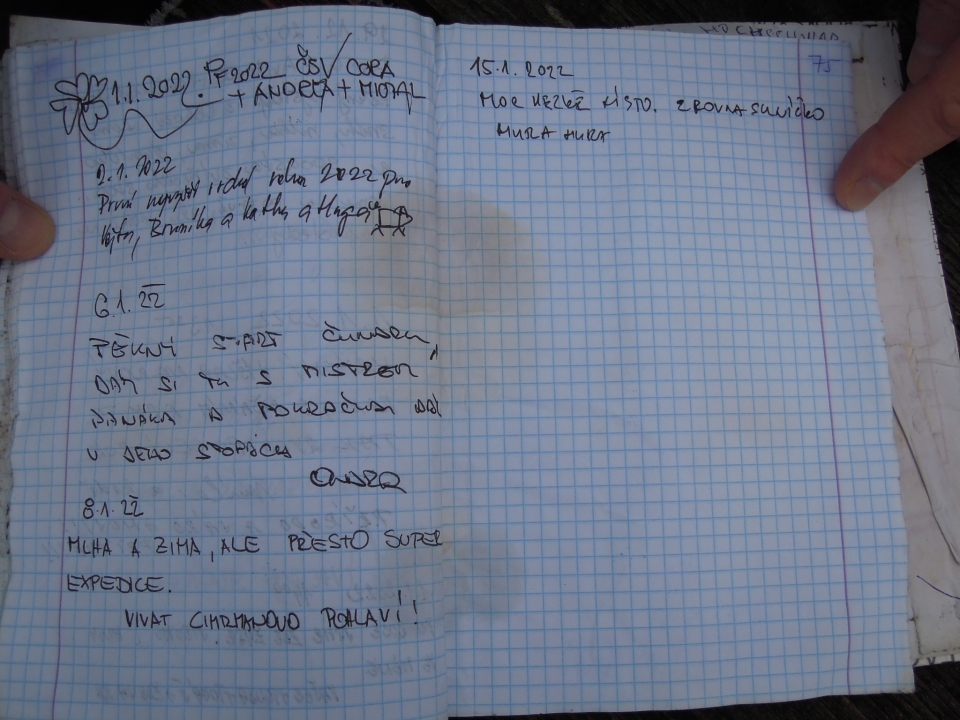 1.1.2022. PF 2022 ČSV CORA
+ ANDREA + MICHAL
2.1.2022
První rohu 2022 pro
a Katka a Huga
6.1.22
PĚKNÝ START ČUNDRU,
DÁM SI TU S MISTREM
PANÁKA A POKRAČUJU DÁL
V JEHO STOPÁCH
ONDRA
8.1.22
MLHA A ZIMA, ALE PŘESTO SUPER
EXPEDICE.
VIVAT CIMRMANOVO POHLAVÍ!!
15.1.2022
MOC HEZKÉ MÍSTO. ZROVNA SLUNÍČKO
HURA HURA
75